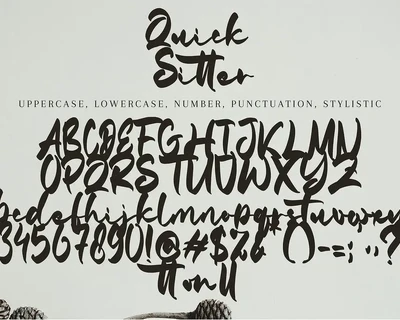 Quick
Sitter
UPPERCASE, LOWERCASE, NUMBER, PUNCTUATION, STYLISTIC
ABCDEFGHIJKLMN
OPQRSTUVWXYZ
bcdefhijklmnopqrstuvwxy
34567890!@#$%&*()-=; ..?
tt on ll